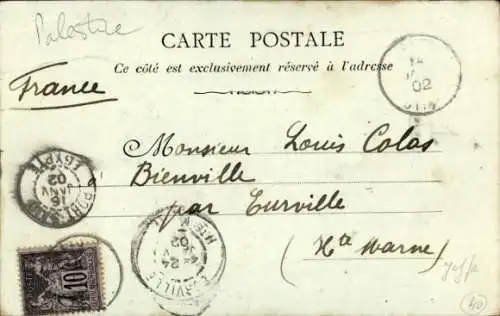 Palestine
CARTE POSTALE
Ce côté est exclusivement réservé à l'adresse
France
Monsieur Louis Colas
à Bienville
par Eurville
(Hte Marne)
Jaffa
14
02
PORT-SAID
16
JANV
02
EGYPTE
EURVILLE
24
02
Hte M
10
40